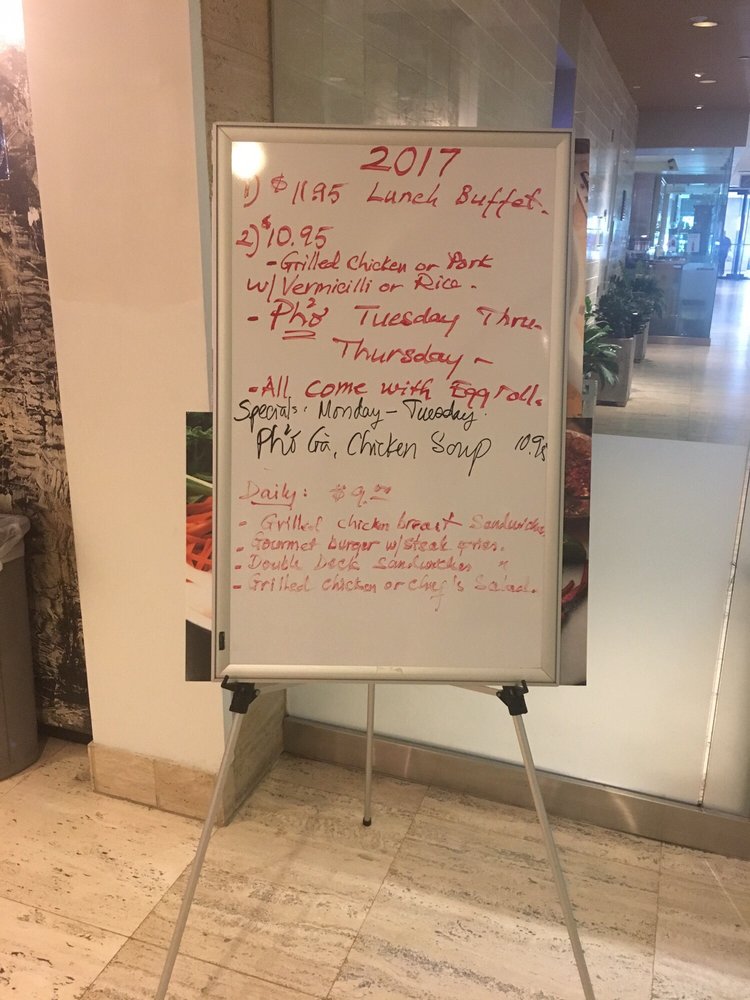 2017
1) $11.95 Lunch Buffet.
2) $10.95
- Grilled Chicken or Pork
w/ Vermicilli or Rice.
- Phở Tuesday Thru
Thursday -
- All come with Egg roll.
Specials: Monday - Tuesday.
Phở Gà, Chicken Soup 10.95
Daily: $9.
- Grilled chicken breast Sandwiches
- Gourmet burger w/ steak fries.
- Double Deck sandwiches "
- Grilled chicken or chef's Salad.